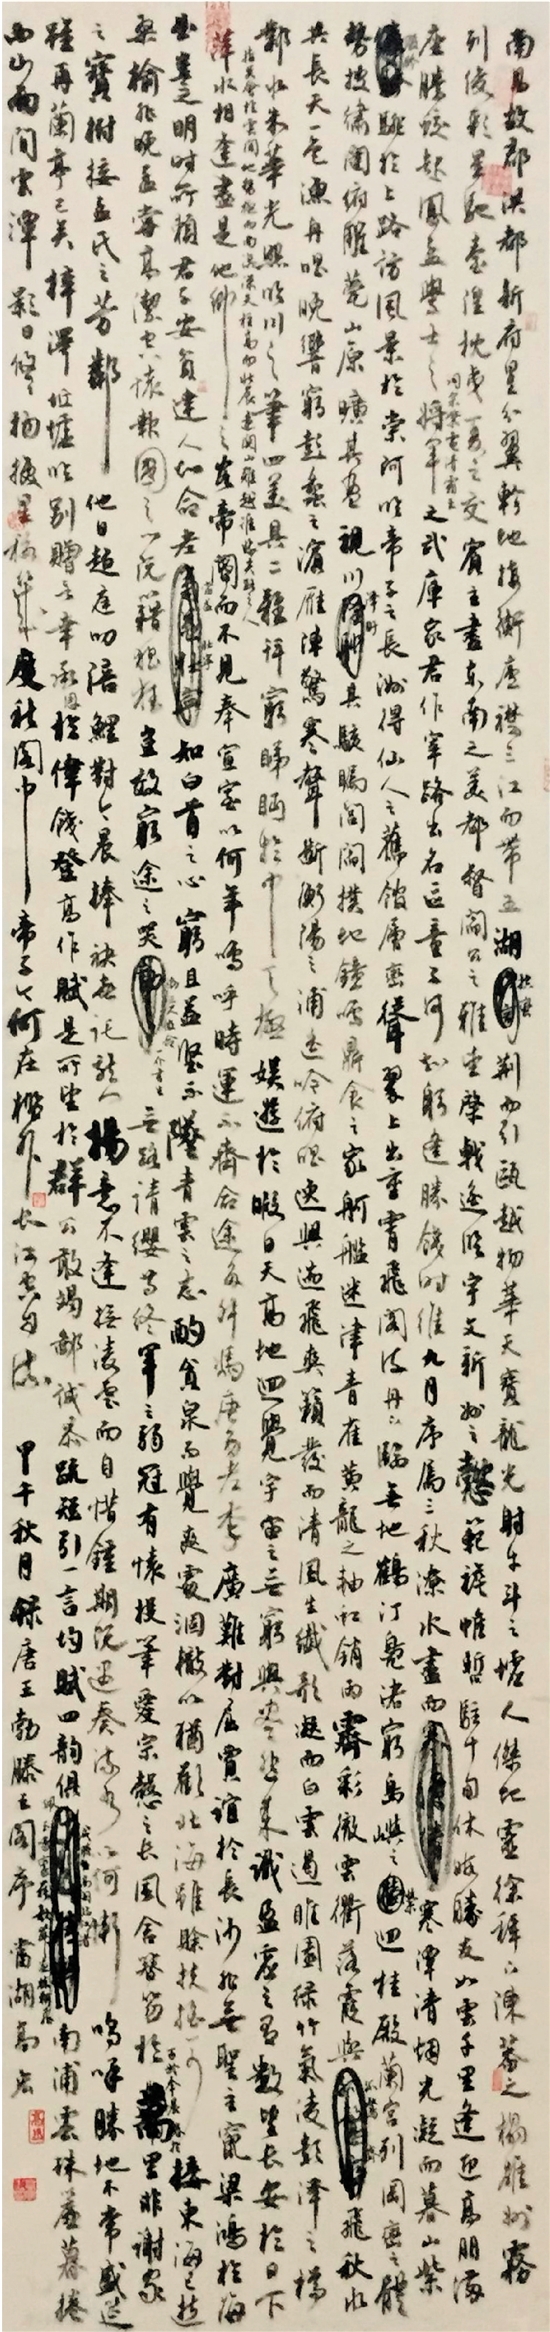 南昌故郡洪都新府星分翼軫地接衡廬襟三江而帶五湖控蠻荊而引甌越物華天寶龍光射牛斗之墟人傑地靈徐孺下陳蕃之榻雄州霧
列俊彩星馳臺隍枕夷夏之交賓主盡東南之美都督閻公之雅望棨戟遙臨宇文新州之懿範襜帷暫駐十旬休暇勝友如雲千里逢迎高朋滿
座騰蛟起鳳孟學士之詞宗紫電青霜王將軍之武庫家君作宰路出名區童子何知躬逢勝餞時維九月序屬三秋潦水盡而寒潭清烟光凝而暮山紫
儼驂騑於上路訪風景於崇阿臨帝子之長洲得仙人之舊館層巒聳翠上出重霄飛閣流丹下臨無地鶴汀鳧渚窮島嶼之縈迴桂殿蘭宮列岡巒之體
勢披繡闥俯雕甍山原曠其盈視川澤盱其駭矚閭閻撲地鐘鳴鼎食之家舸艦迷津青雀黃龍之軸虹銷雨霽彩徹雲衢落霞與孤鶩齊飛秋水
共長天一色漁舟唱晚響窮彭蠡之濱雁陣驚寒聲斷衡陽之浦遙吟俯唱逸興遄飛爽籟發而清風生纖歌凝而白雲遏睢園綠竹氣凌彭澤之樽
鄴水朱華光照臨川之筆四美具二難并窮睇眄於中天極娛遊於暇日天高地迥覺宇宙之無窮興盡悲來識盈虛之有數望長安於日下
指吳會於雲間地勢極而南溟深天柱高而北辰遠關山難越誰悲失路之人
萍水相逢盡是他鄉之客帝閽而不見奉宣室以何年嗚呼時運不齊命途多舛馮唐易老李廣難封屈賈誼於長沙非無聖主竄梁鴻於海
曲豈乏明時所賴君子安貧達人知命老當益壯寧知白首之心窮且益堅不墜青雲之志酌貪泉而覺爽處涸轍以猶歡北海雖賒扶搖可接東海已逝
桑榆非晚孟嘗高潔空懷報國之心阮籍猖狂豈效窮途之哭勃三尺微命一介書生無路請纓等終軍之弱冠有懷投筆愛宗愨之長風舍簪笏於百齡奉晨昏於萬里非謝家
之寶樹接孟氏之芳鄰他日趨庭叨陪鯉對今晨捧袂喜託龍門楊意不逢撫凌雲而自惜鍾期既遇奏流水以何慚嗚呼勝地不常盛筵
難再蘭亭已矣梓澤丘墟臨別贈言幸承恩於偉餞登高作賦是所望於群公敢竭鄙誠恭疏短引一言均賦四韻俱南浦雲珠簾暮捲
西山雨閒雲潭影日悠悠物換星移幾度秋閣中帝子今何在檻外長江空自流 甲午秋月錄唐王勃滕王閣序 當湖高宏